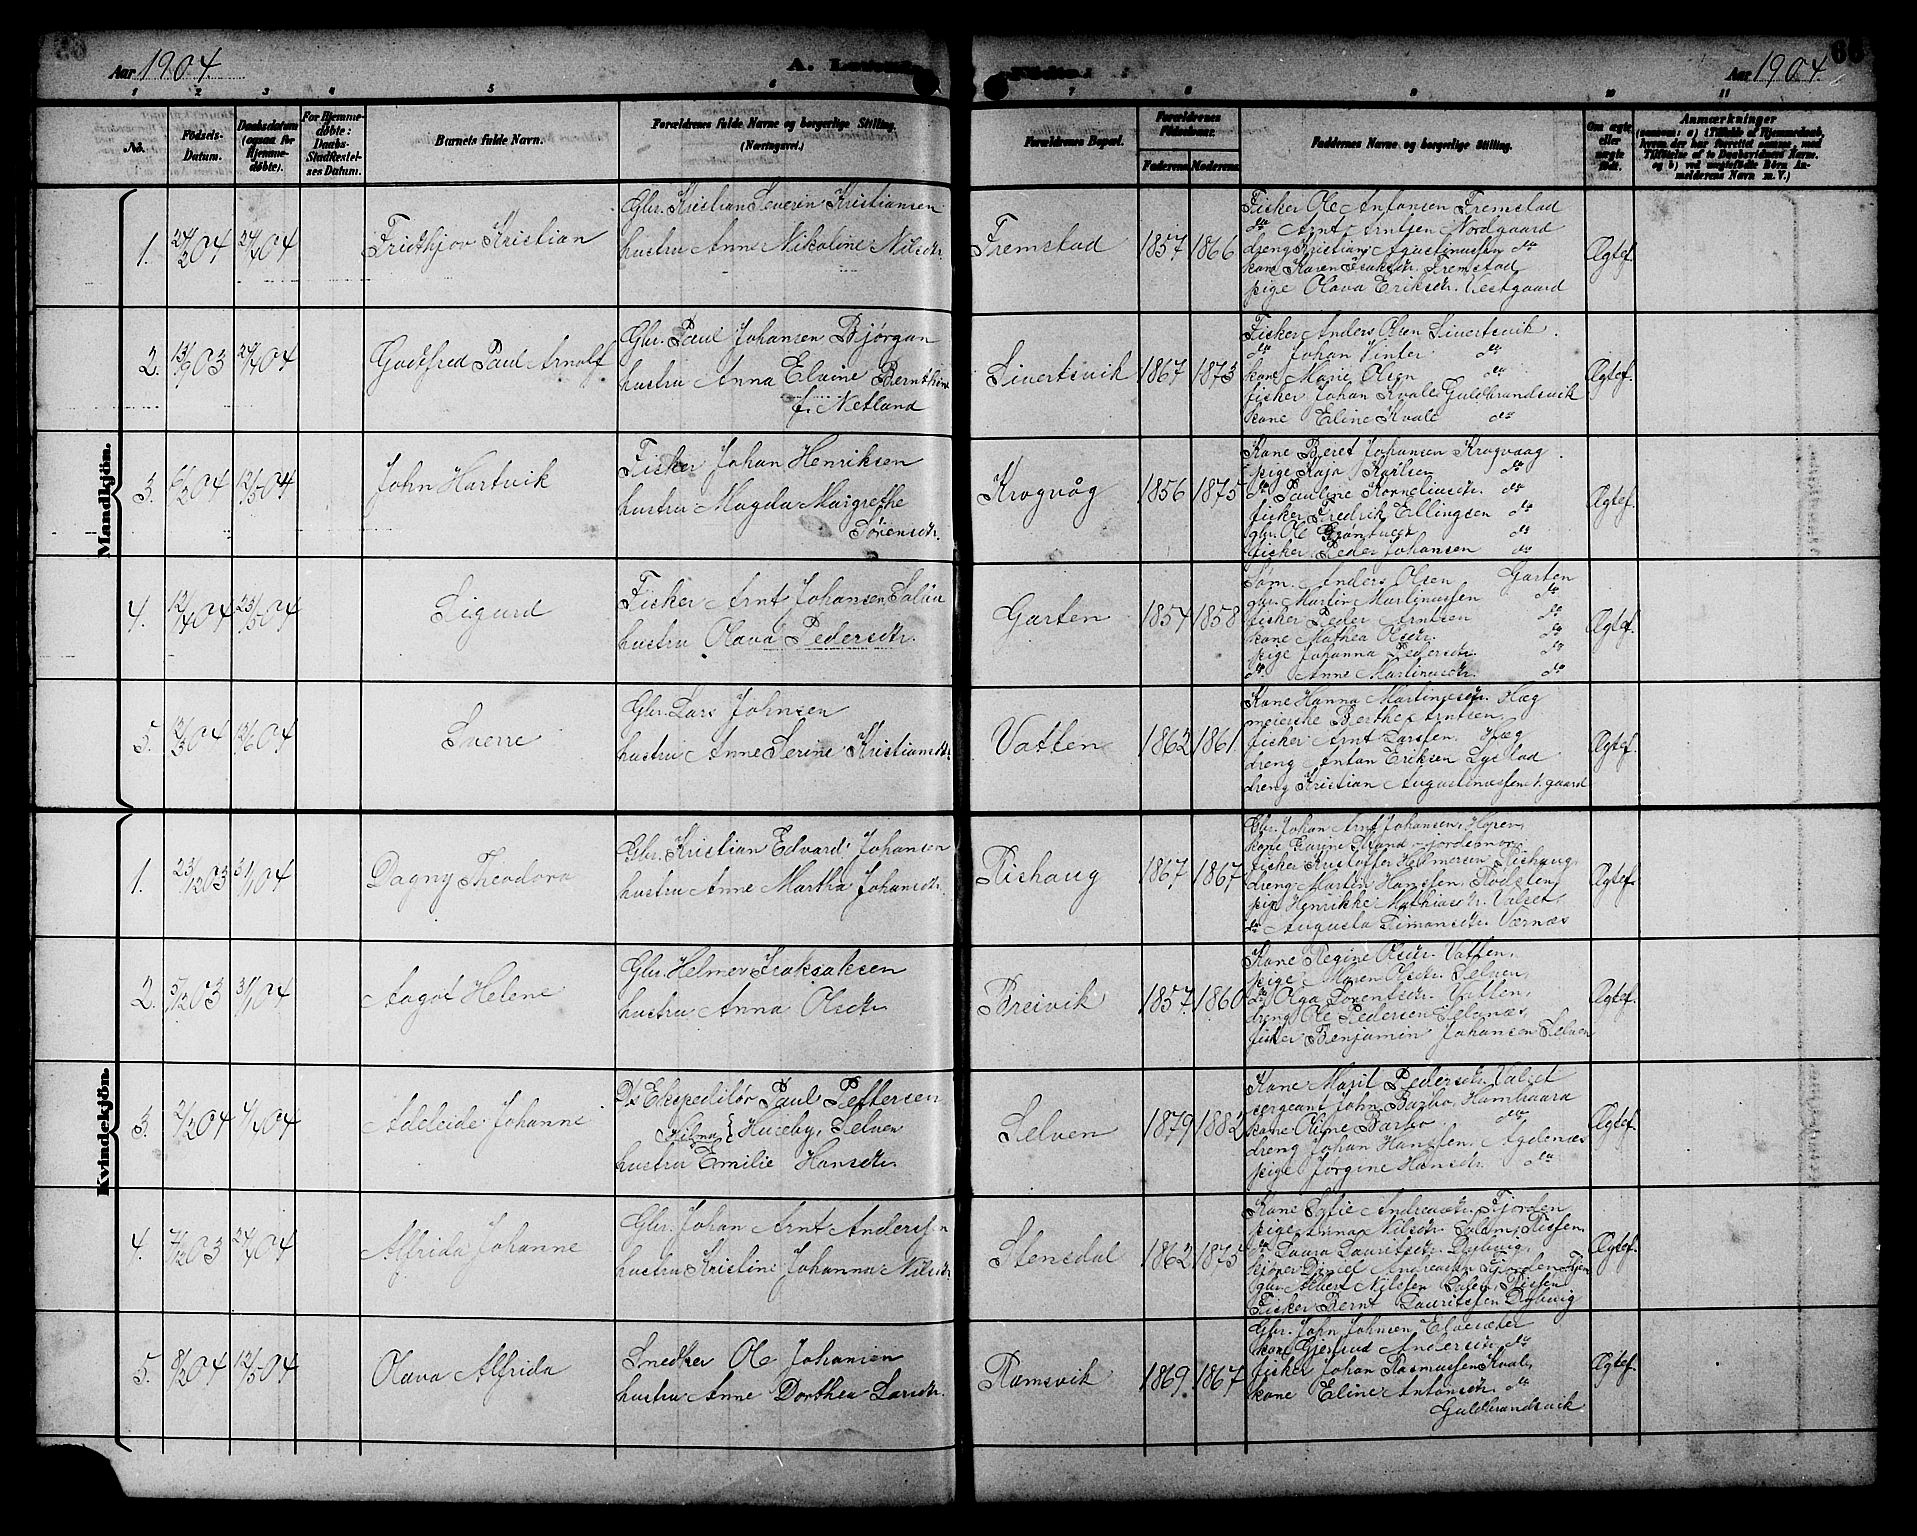 Aar 1904
A. Levende
Fødte
Aar 1904
66
1 2 3 4 5 6 7 8 9 10 11
No.
Fødsels-Datum.
Daabsdatum (ogsaa for Hjemme-døbte).
For Hjemme-døbte: Daabs-Stadfæstel-ses Datum.
Barnets fulde Navn.
Forældrenes fulde Navne og borgerlige Stilling. (Næringsvei.)
Forældrenes Bopæl.
Forældrenes Fødselsaar.
Faderens
Moderens
Faddernes Navne og borgerlige Stilling.
Om ægte eller uægte født.
Anmærkninger
Mandkjön.
1. 24/2 04 24/4 04 Fridthjov Kristian
Gbr. Kristian Severin Kristiansen
hustru Anne Nikoline Nilsdtr.
Fremstad 1857 1866
Fisker Ole Antonsen Fremstad
do Arnt Arntsen Nordgaard
dreng Kristian Agustinussen do
kone Karen Isaksdtr. Fremstad
pige Olava Eriksdtr. Vestgaard
Ægtef.
2. 13/9 03 24/4 04 Godtfred Paul Arnolf
Gbr. Paul Johansen Bjørgan
hustru Anna Elvine Bernthine
f. Netland
Sivertsvik 1867 1873
Fisker Anders Olsen Sivertsvik
do Johan Vinter do
kone Marie Olsen do
fisker Johan Kvale Guldbrandsvik
kone Eline Kvale do
Ægtef.
3. 6/2 04 12/5 04 John Hartvik
Fisker Johan Henriksen
hustru Magda Margrethe
Sørensdtr.
Krogvåg 1856 1875
Kone Beret Johansen Krogvaag
pige Kaja Karlsen do
do Pauline Korneliusdtr. do
fisker Fredrik Ellingsen do
gbr. Ole Grøntvedt do
fisker Peder Johansen do
Ægtef.
4. 12/4 04 23/5 04 Sigurd
Fisker Arnt Johansen
hustru Olava Pedersdtr.
Garten 1854 1858
Søm. Anders Olsen Garten
gbr. Martin Martinussen do
fisker Peder Arntsen do
kone Mathea Olsdtr. do
pige Johanna Pedersdtr. do
do Anne Martinusdtr. do
Ægtef.
5. 12/3 04 12/6 04 Sverre
Gbr. Lars Johnsen
hustru Anne Serine Kristiansdtr.
Vatten 1862 1861
Kone Hanna Martinusdtr. Hæg
meierske Berthe Arntsen,
fisker Arnt Larssen, Hæg
dreng Anton Eriksen Lystad
dreng Kristian Augustinussen N.gaard
Ægtef.
Kvindekjön.
1. 23/12 03 31/1 04 Dagny Theodora
Gbr. Kristian Edvard Johansen
hustru Anne Martha Johansdtr.
Rishaug 1867 1867
Gbr. Johan Arnt Johansen,
kone Karine Strand - jordemor
fisker Kristoffer Helmersen Rishaug,
dreng Martin Hanssen,
pige Henrikke Mathiasdtr. Valset,
do Augusta Simonsdtr. Værnæs
Ægtef.
2. 5/12 03 31/1 04 Aagot Helene
Gbr. Helmer Isaksen
hustru Anna Olsdtr.
Breivik 1857 1860
Kone Regine Olsdtr. Vatten,
pige Maren Olsdtr. Selven,
do Olga Lorentsdtr. Vatten,
dreng Ole Pedersen Selvnæs,
fisker Benjamin Johansen Selven
Ægtef.
3. 2/2 04 4/4 04 Adeleide Johanne
Ds Ekspeditør Paul Pettersen
Hilma Huseby, Selven
hustru Emilie Hansdtr.
Selven 1879 1882
Kone Marit Pedersdtr. Valset
sergeant John Barbo, Hambaara
kone Oline Barbo do
dreng Johan Hanssen, Agdenæs
pige Jørgine Hansdtr. do
Ægtef.
4. 7/12 03 24/4 04 Alfrida Johanne
Gbr. Johan Arnt Anderssen
hustru Kristine Johanna Nilsdtr.
Stensdal 1862 1875
Kone Sofie Andreasdtr. Fjorden
pige Anna Nilsdtr. Rissen,
do Laura Lauritsdtr. Dybvig,
Daniel Andreassen Fjorden,
gbr. Albert Nilssen Rissen
Fisker Bernt Lauritssen Dybvig
Ægtef.
5. 8/2 04 12/5 04 Olava Alfrida
Snedker Ole Johansen
hustru Anne Dorthea Larsdtr.
Ramsvik 1869 1867
Gbr. John Johnsen Elvesæter
kone Gjertrud Andersdtr. do
fisker Johan Rasmussen Kvale,
kone Eline Antonsdtr. do
Guldbrandsvik
Ægtef.